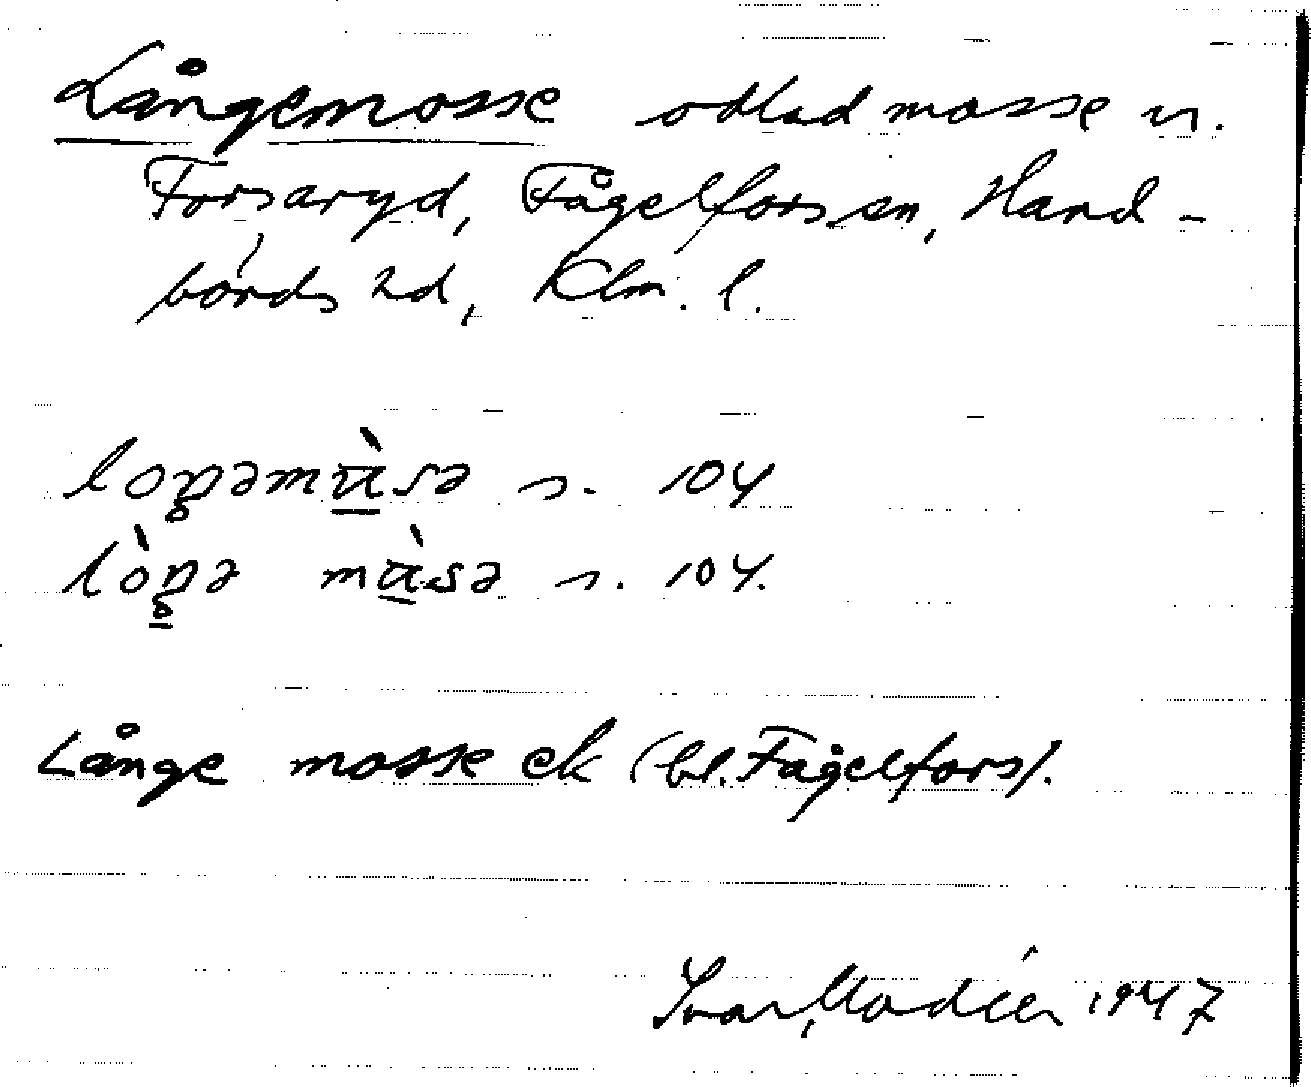 Långemosse odlad mosse n.
Forsaryd, Fågelfors sn, Hand-
börds hd, Klm. l.
loŋəmùsə s. 104
lòŋə mùsə s. 104.
Långe mosse ek (bl. Fågelfors).
Ivar Modéer 1947